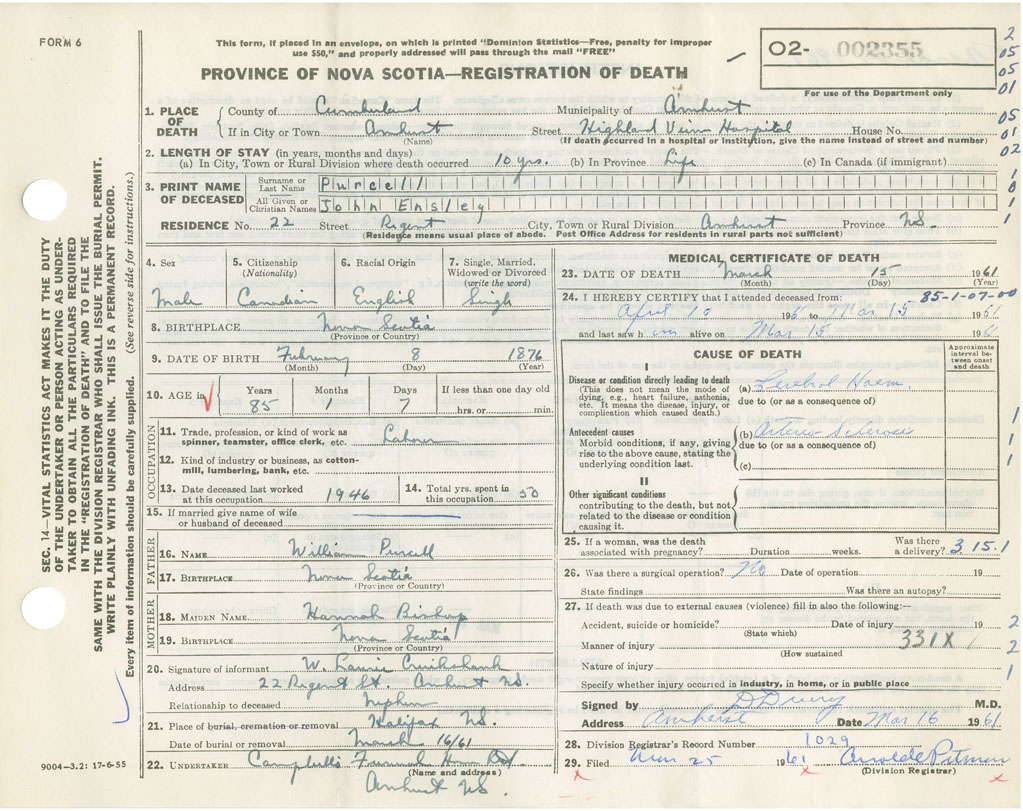 FORM 6
This form, if placed in an envelope, on which is printed "Dominion Statistics—Free, penalty for improper
use $50," and properly addressed will pass through the mail "FREE"
PROVINCE OF NOVA SCOTIA—REGISTRATION OF DEATH
02- 002355
For use of the Department only
2
05
05
01
05
01
02
1
0
1
1
1. PLACE OF DEATH
County of Cumberland Municipality of Amherst
If in City or Town Amherst Street Highland View Hospital House No.
(Name) (If death occurred in a hospital or institution, give the name instead of street and number)
2. LENGTH OF STAY (in years, months and days)
(a) In City, Town or Rural Division where death occurred 10 yrs. (b) In Province Life (c) In Canada (if immigrant)
3. PRINT NAME OF DECEASED
Surname or Last Name Purcell
All Given or Christian Names John Ensley
RESIDENCE No. 22 Street Regent City, Town or Rural Division Amherst Province NS.
(Residence means usual place of abode. Post Office Address for residents in rural parts not sufficient)
4. Sex
Male
5. Citizenship
(Nationality)
Canadian
6. Racial Origin
English
7. Single, Married, Widowed or Divorced
(write the word)
Single
8. BIRTHPLACE Nova Scotia
(Province or Country)
9. DATE OF BIRTH February 8 1876
(Month) (Day) (Year)
10. AGE in
Years 85
Months 1
Days 7
If less than one day old
hrs. or min.
OCCUPATION
11. Trade, profession, or kind of work as spinner, teamster, office clerk, etc. Labour
12. Kind of industry or business, as cotton-mill, lumbering, bank, etc.
13. Date deceased last worked at this occupation 1946
14. Total yrs. spent in this occupation 50
15. If married give name of wife or husband of deceased
FATHER
16. NAME William Purcell
17. BIRTHPLACE Nova Scotia
(Province or Country)
MOTHER
18. MAIDEN NAME Hannah Bishop
19. BIRTHPLACE Nova Scotia
(Province or Country)
20. Signature of informant W. Laurie Cruikshank
Address 22 Regent St. Amherst NS.
Relationship to deceased Nephew
21. Place of burial, cremation or removal Halifax NS.
Date of burial or removal March 16/61
22. UNDERTAKER Campbell's Funeral Home
(Name and address)
Amherst NS.
MEDICAL CERTIFICATE OF DEATH
23. DATE OF DEATH March 15 1961
(Month) (Day) (Year)
24. I HEREBY CERTIFY that I attended deceased from: 85-1-07-00
April 10 to Mar 15 1961
and last saw h im alive on Mar 15 1961
CAUSE OF DEATH
Approximate interval between onset and death
I
Disease or condition directly leading to death
(This does not mean the mode of dying, e.g., heart failure, asthenia, etc. It means the disease, injury, or complication which caused death.)
(a) Cerebral Haem.
due to (or as a consequence of)
Antecedent causes
Morbid conditions, if any, giving rise to the above cause, stating the underlying condition last.
(b) Arterio Sclerosis
due to (or as a consequence of)
(c)
1
1
1
II
Other significant conditions
contributing to the death, but not related to the disease or condition causing it.
25. If a woman, was the death associated with pregnancy? Duration weeks. Was there a delivery? 3 15.1
26. Was there a surgical operation? No Date of operation 19
State findings Was there an autopsy?
27. If death was due to external causes (violence) fill in also the following:—
Accident, suicide or homicide? Date of injury 19 2
(State which)
Manner of injury 331X 2
(How sustained)
Nature of injury 1
Specify whether injury occurred in industry, in home, or in public place
Signed by D Drury M.D.
Address Amherst Date Mar 16 1961
28. Division Registrar's Record Number 1029
29. Filed Mar 25 1961 Pitman
(Division Registrar)
SEC. 14—VITAL STATISTICS ACT MAKES IT THE DUTY
OF THE UNDERTAKER OR PERSON ACTING AS UNDER-
TAKER TO OBTAIN ALL THE PARTICULARS REQUIRED
IN THE "REGISTRATION OF DEATH" AND TO FILE THE
SAME WITH THE DIVISION REGISTRAR WHO SHALL ISSUE THE BURIAL PERMIT.
WRITE PLAINLY WITH UNFADING INK. THIS IS A PERMANENT RECORD.
Every item of information should be carefully supplied. (See reverse side for instructions.)
9004—3.2: 17-6-55